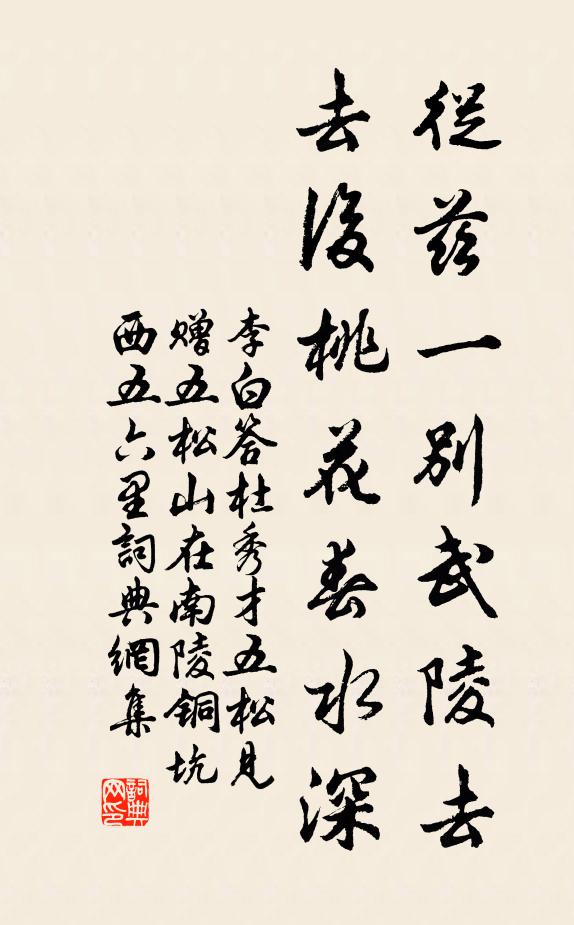 從茲一別武陵去
去後桃花春水深
李白答杜秀才五松見
贈五松山在南陵銅坑
西五六里詞典網集
詞典网印